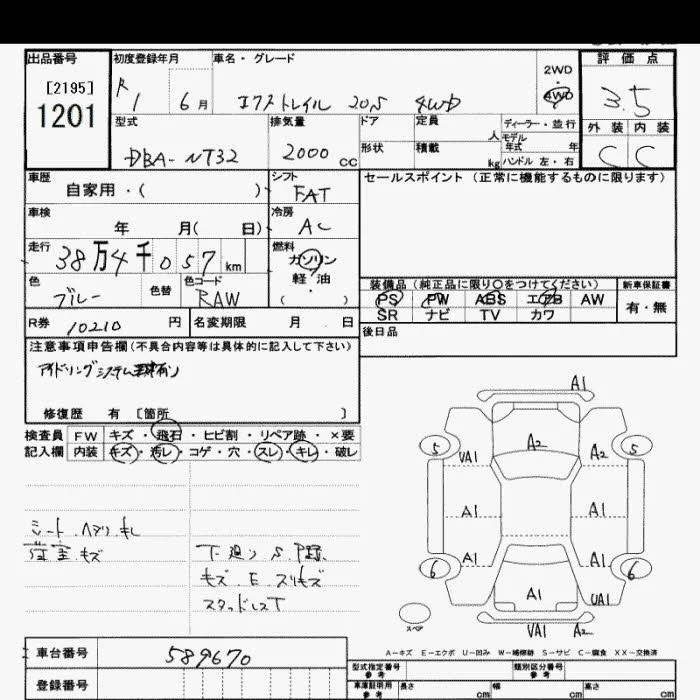 出品番号 初度登録年月 車名・グレード 2WD ・ 4WD 評価点
[2195] R 1 6月 エクストレイル 20S 4WD 3.5
1201 型式 排気量 ドア 定員 人 ディーラー・並行 外装 内装
DBA-NT32 2000 CC 形状 積載 kg モデル年式 年 ハンドル 左・右 C C
車歴 自家用・( ) シフト FAT セールスポイント (正常に機能するものに限ります)
車検 年 月( 日) 冷房 AC
走行 38万4千057km 燃料 ガソリン・軽油・( )
色 ブルー 色替 色コード RAW
装備品(純正品に限り○をつけてください) 新車保証書
PS PW ABS エアB AW 有・無
SR ナビ TV カワ
R券 10210 円 名変期限 月 日 後日品
注意事項申告欄(不具合内容等は具体的に記入して下さい)
アイドリングシステム
修復歴 有 [箇所 ]
検査員 FW キズ・飛石・ヒビ割・リペア跡・×要
記入欄 内装 キズ・汚レ・コゲ・穴・スレ・キレ・破レ
シート ヘタリ キレ
荷室 キズ
下廻り S
キズ E スリキズ
スタッドレスT
A1
5 A2 5
VA1 A2
A1 A1
A1 A1
6 6
A1 UA1
スペア VA1 A2
A-キズ E-エクボ U-凹み W-補修跡 S-サビ C-腐食 XX-交換済
車台番号 589670
登録番号
型式指定番号 参考 類別区分番号 参考
車庫証明用 参考 長さ cm 幅 cm 高さ cm